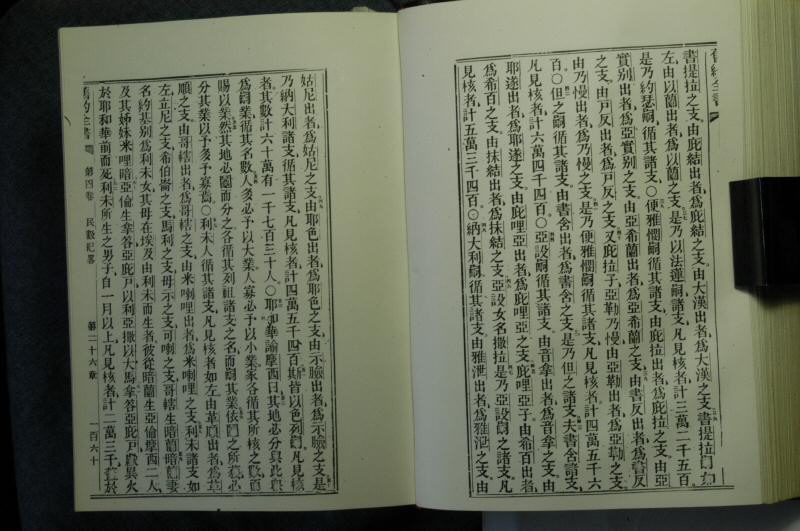 舊約全書
書提拉之支由庇結出者爲庇結之支由大漢出者爲大漢之支書提拉嗣如
左由以蘭出者爲以蘭之支是乃以法蓮嗣諸支凡見核者計三萬二千五百
是乃約瑟嗣循其諸支○便雅憫嗣循其諸支由庇拉出者爲庇拉之支由亞
實別出者爲亞實別之支由亞希蘭出者爲亞希蘭之支由書反出者爲書反
之支由戶反出者爲戶反之支又庇拉子亞勒乃慢由亞勒出者爲亞勒之支
由乃慢出者爲乃慢之支是乃便雅憫嗣循其諸支凡見核者計四萬五千六
百○但之嗣循其諸支由書含出者爲書含之支是乃但之諸支夫書含諸支
凡見核者計六萬四千四百○亞設嗣循其諸支由音拿出者爲音拿之支由
耶遂出者爲耶遂之支由庇哩亞出者爲庇哩亞之支庇哩亞子由希百出者
爲希百之支由抹結出者爲抹結之支亞設女名撒拉是乃亞設嗣之諸支凡
見核者計五萬三千四百○納大利嗣循其諸支由雅泄出者爲雅泄之支由
姑尼出者爲姑尼之支由耶色出者爲耶色之支由示臉出者爲示臉之支是
乃納大利諸支循其諸支凡見核者計四萬五千四百斯皆以色列嗣凡見核
者其數計六十萬有一千七百三十人○耶和華諭摩西曰其地必分與此衆
爲嗣業循其名數人多必予以大業人寡必予以小業各循其所核之數而
賜以業然其地必鬮而分之各循其列祖諸支之名而嗣其業依鬮之所
分其業以予多予寡焉○利未人循其諸支凡見核者如左由革順出者爲革
順之支由哥轄出者爲哥轄之支由米喇哩出者爲米喇哩之支利未諸支如
左立尼之支希伯崙之支馬利之支母示之支可喇之支哥轄生暗蘭暗蘭妻
名約基別爲利未女其母在埃及由利未而生者彼從暗蘭生亞倫摩西二人
及其姊妹米哩暗亞倫生拿答亞庇戶以利亞撒以大馬拿答亞庇戶獻異火
於耶和華前而死利未所生之男子自一月以上凡見核者計二萬三千蓋於
舊約全書 第四卷 民數紀畧 第二十六章 一百六十